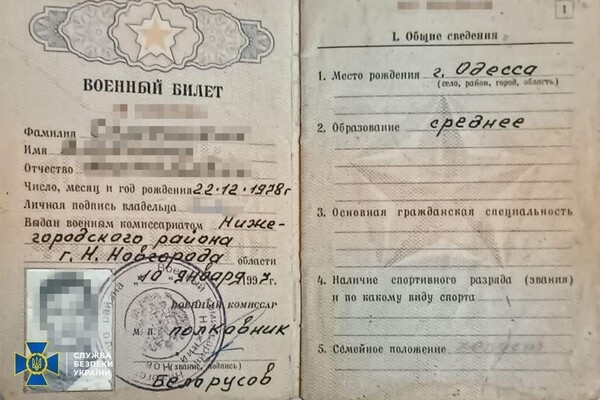 ВОЕННЫЙ БИЛЕТ
Фамилия
Имя
Отчество
Число, месяц и год рождения 22.12.1978г
Личная подпись владельца
Выдан военным комиссариатом Ниже-
городского района
г. Н. Новгорода области
"10" января 1997г.
ВОЕННЫЙ КОМИССАР
М. П. полковник
(звание, подпись)
Белорусов
СЛУЖБА
БЕЗПЕКИ
УКРАЇНИ
1
I. Общие сведения
1. Место рождения г. Одесса
(село, район, город, область)
2. Образование среднее
3. Основная гражданская специальность
4. Наличие спортивного разряда (звания)
и по какому виду спорта
5. Семейное положение